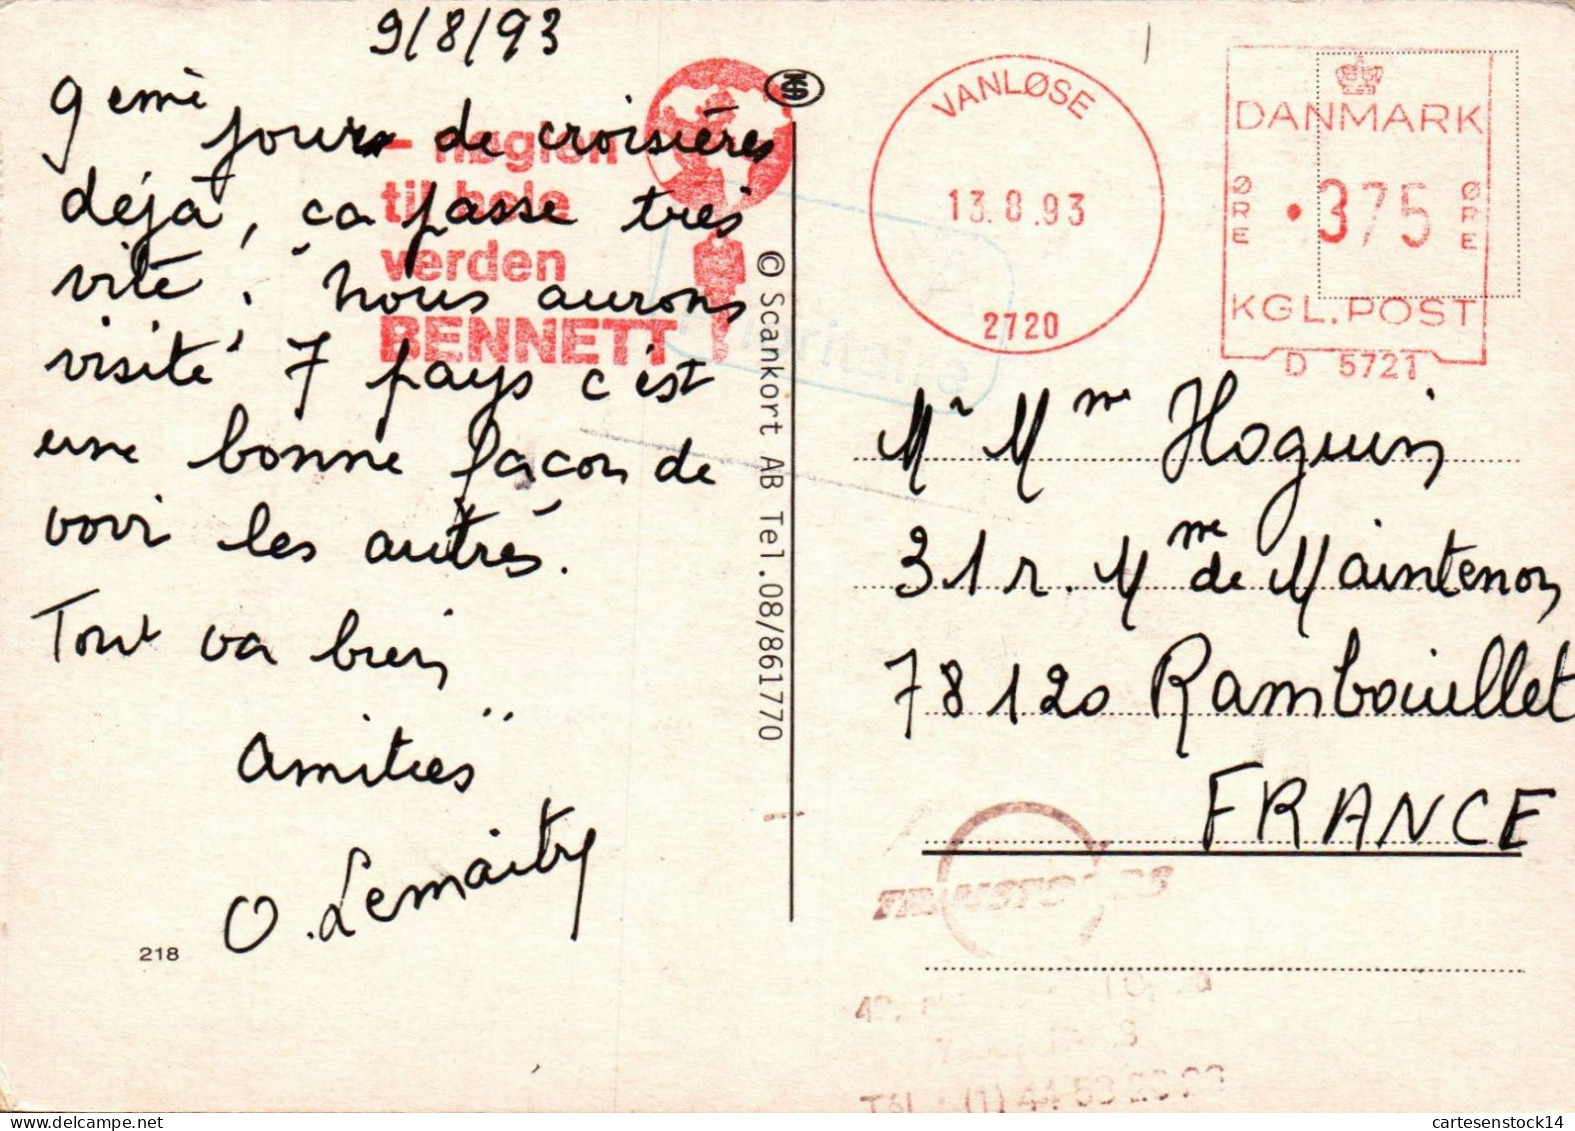 9/8/93
9 emè
jours de croisières
déjà, ca passe très
vite. nous aurons
visité 7 pays c'est
une bonne façon de
voir les autres.
Tout va bien
amitiés
O. Lemaitre
218
- nøglen
til hele
verden
BENNETT
© Scankort AB Tel.08/861770
VANLØSE
13.8.93
2720
DANMARK
ØRE 375 ØRE
KGL. POST
D 5721
A
Prioritaire
Mr Mme Hoguin
31 r. Mme de Maintenon
78120 Rambouillet
FRANCE
TRANSTOURS
Tél. : (1) 44
cartesenstock14